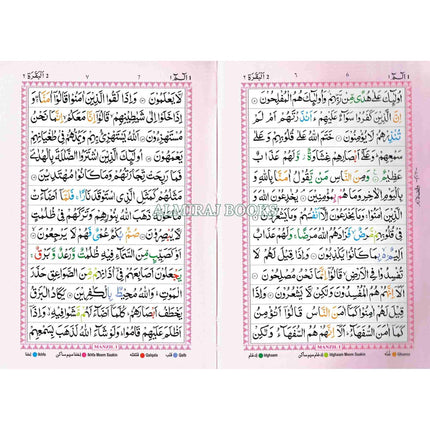 الٓمّٓ ١
٦
البقرة ٢
اُولٰٓئِكَ عَلٰى هُدًى مِّنْ رَّبِّهِمْ وَاُولٰٓئِكَ هُمُ الْمُفْلِحُوْنَ
اِنَّ الَّذِيْنَ كَفَرُوْا سَوَآءٌ عَلَيْهِمْ ءَاَنْذَرْتَهُمْ اَمْ لَمْ
تُنْذِرْهُمْ لَا يُؤْمِنُوْنَ خَتَمَ اللّٰهُ عَلٰى قُلُوْبِهِمْ وَعَلٰى
سَمْعِهِمْ وَعَلٰٓى اَبْصَارِهِمْ غِشَاوَةٌ وَّلَهُمْ عَذَابٌ
عَظِيْمٌ وَمِنَ النَّاسِ مَنْ يَّقُوْلُ اٰمَنَّا بِاللّٰهِ وَ
بِالْيَوْمِ الْاٰخِرِ وَمَا هُمْ بِمُؤْمِنِيْنَ يُخٰدِعُوْنَ اللّٰهَ وَ
الَّذِيْنَ اٰمَنُوْا وَمَا يَخْدَعُوْنَ اِلَّآ اَنْفُسَهُمْ وَمَا يَشْعُرُوْنَ
فِيْ قُلُوْبِهِمْ مَّرَضٌ فَزَادَهُمُ اللّٰهُ مَرَضًا وَلَهُمْ عَذَابٌ
اَلِيْمٌ بِمَا كَانُوْا يَكْذِبُوْنَ وَاِذَا قِيْلَ لَهُمْ لَا
تُفْسِدُوْا فِي الْاَرْضِ قَالُوْٓا اِنَّمَا نَحْنُ مُصْلِحُوْنَ
اَلَآ اِنَّهُمْ هُمُ الْمُفْسِدُوْنَ وَلٰكِنْ لَّا يَشْعُرُوْنَ وَاِذَا
قِيْلَ لَهُمْ اٰمِنُوْا كَمَآ اٰمَنَ النَّاسُ قَالُوْٓا اَنُؤْمِنُ
كَمَآ اٰمَنَ السُّفَهَآءُ اَلَآ اِنَّهُمْ هُمُ السُّفَهَآءُ وَلٰكِنْ
MANZIL 1
Idgham Idgham Meem Saakin Ghunna
الٓمّٓ ١
٧
البقرة ٢
لَّا يَعْلَمُوْنَ وَاِذَا لَقُوا الَّذِيْنَ اٰمَنُوْا قَالُوْٓا اٰمَنَّا وَ
اِذَا خَلَوْا اِلٰى شَيٰطِيْنِهِمْ قَالُوْٓا اِنَّا مَعَكُمْ اِنَّمَا نَحْنُ
مُسْتَهْزِءُوْنَ اَللّٰهُ يَسْتَهْزِئُ بِهِمْ وَيَمُدُّهُمْ فِيْ طُغْيَانِهِمْ
يَعْمَهُوْنَ اُولٰٓئِكَ الَّذِيْنَ اشْتَرَوُا الضَّلٰلَةَ بِالْهُدٰى
فَمَا رَبِحَتْ تِّجَارَتُهُمْ وَمَا كَانُوْا مُهْتَدِيْنَ
مَثَلُهُمْ كَمَثَلِ الَّذِى اسْتَوْقَدَ نَارًا فَلَمَّآ اَضَآءَتْ
مَا حَوْلَهٗ ذَهَبَ اللّٰهُ بِنُوْرِهِمْ وَتَرَكَهُمْ فِيْ ظُلُمٰتٍ
لَّا يُبْصِرُوْنَ صُمٌّۢ بُكْمٌ عُمْيٌ فَهُمْ لَا يَرْجِعُوْنَ
اَوْ كَصَيِّبٍ مِّنَ السَّمَآءِ فِيْهِ ظُلُمٰتٌ وَّرَعْدٌ وَّبَرْقٌ
يَجْعَلُوْنَ اَصَابِعَهُمْ فِيْٓ اٰذَانِهِمْ مِّنَ الصَّوَاعِقِ حَذَرَ
الْمَوْتِ وَاللّٰهُ مُحِيْطٌۢ بِالْكٰفِرِيْنَ يَكَادُ الْبَرْقُ
يَخْطَفُ اَبْصَارَهُمْ كُلَّمَآ اَضَآءَ لَهُمْ مَّشَوْا فِيْهِ وَاِذَآ
اَظْلَمَ عَلَيْهِمْ قَامُوْا وَلَوْ شَآءَ اللّٰهُ لَذَهَبَ بِسَمْعِهِمْ
MANZIL 1
Ikhfa Ikhfa Meem Saakin Qalqala Qalb
ALMIRAJ BOOKS